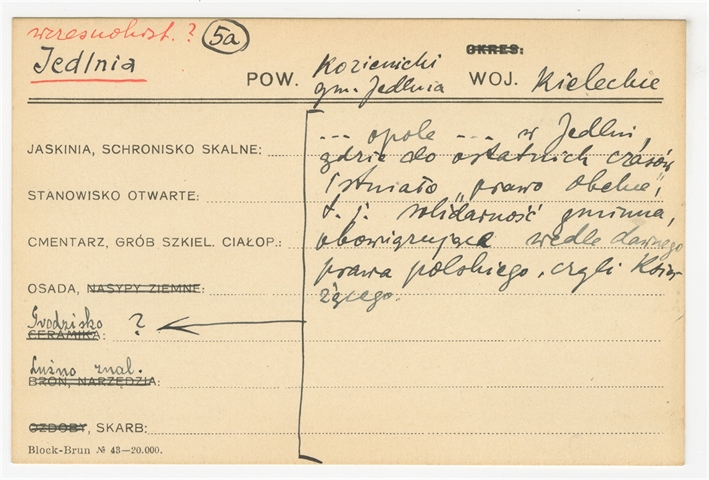 wczesnohist. ? 5a
Jedlnia
OKRES:
POW. Kozienicki
gm. Jedlnia
WOJ. Kieleckie
JASKINIA, SCHRONISKO SKALNE:
STANOWISKO OTWARTE:
CMENTARZ, GRÓB SZKIEL. CIAŁOP.:
OSADA, NASYPY ZIEMNE:
Grodzisko ?
CERAMIKA:
Luźno znal.
BROŃ, NARZĘDZIA:
OZDOBY, SKARB:
--- opole --- w Jedlni,
gdzie do ostatnich czasów
istniało „prawo obelne",
t. j. solidarność gminna,
obowiązująca wedle dawnego
prawa polskiego, czyli Ksią-
żęcego.
Block-Brun № 43—20.000.